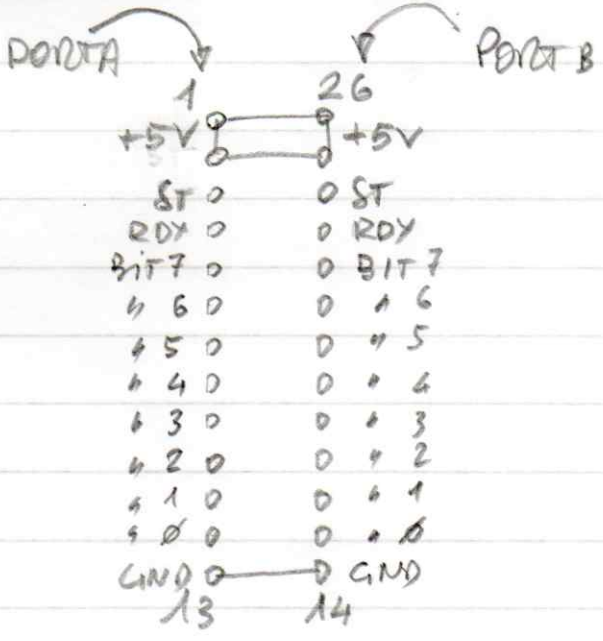 PORTA PORT B
1 26
+5V +5V
ST ST
RDY RDY
BIT7 BIT7
" 6 " 6
" 5 " 5
" 4 " 4
" 3 " 3
" 2 " 2
" 1 " 1
" 0 " 0
GND GND
13 14